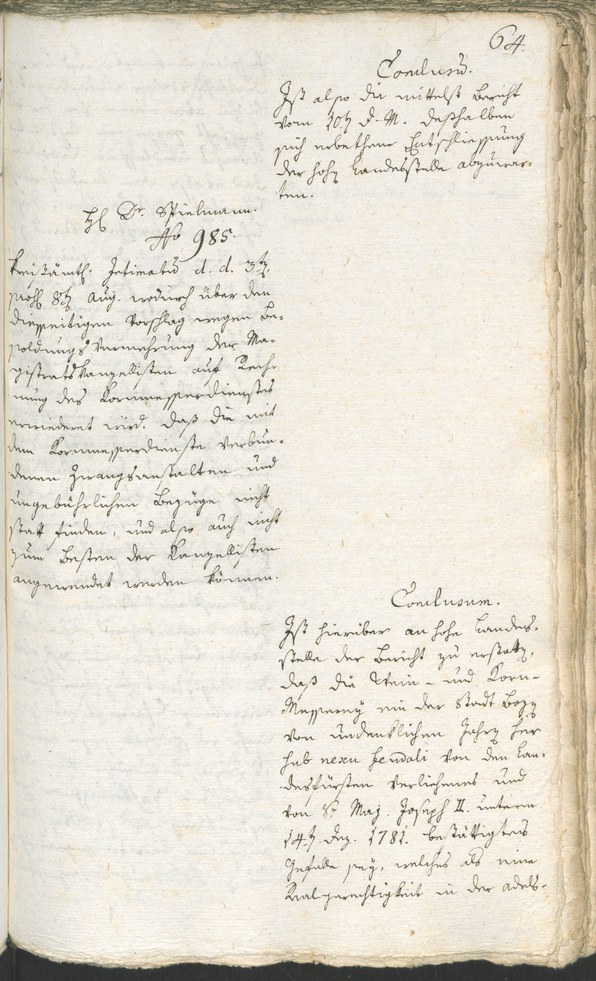 64.
Conclusũ.
Ist also die mittelst Bericht
vom 10t d. M. deßhalben
sich erbethene Entschliessung
der hohn Landesstelle abzuwar-
ten.
H Dr. Spielmann.
No 985.
Kreisämtl. Intimatũ d. d. 3t,
präs 8t Aug. wodurch über den
diesseitigen Vorschlag wegen Be-
soldungs Vermehrung der Ma-
gistratskanzellisten auf Rech-
nung des Kornmesserdienstes
erwiederet wird. daß die mit
dem Kornmesserdienste verbun-
denen Zwangsanstalten und
ungebührlichen Bezüge nicht
statt finden, und also auch nicht
zum Besten der Kanzellisten
angewendet werden können.
Conclusum.
Ist hierüber an hohe Landes-
stelle der Bericht zu erstattn,
daß die Wein- und Korn-
Messerey ein der Stadt Bozn
von undenklichen Jahrn her
sub nexu feudali von den Lan-
desfürsten verliehenes und
von Sr Maj. Joseph II. unterm
14t. Dez. 1782. bestättigtes
Gefälle sey, welches als eine
Realgerechtigkeit in der adels-